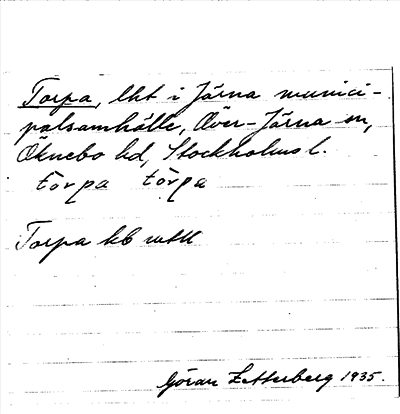 Torpa, lht i Järna munici-
palsamhälle, Över-Järna sn,
Öknebo hd, Stockholms l.
tòrpa tòrpa
Torpa hb
Göran Zetterberg 1935.